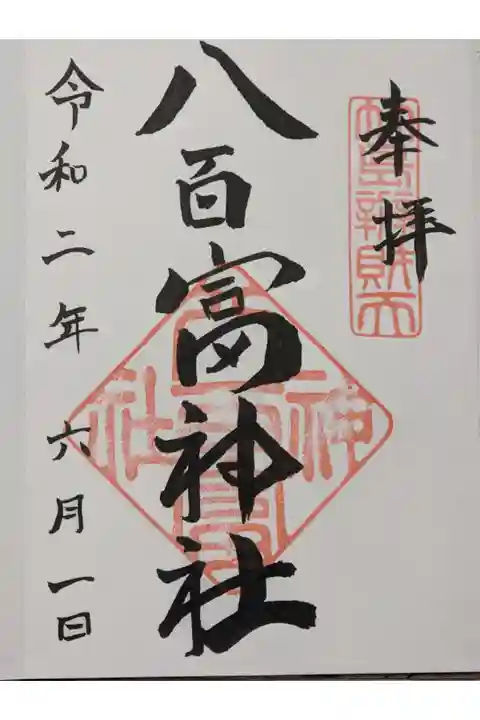 奉拝
八百富神社
令和二年六月一日